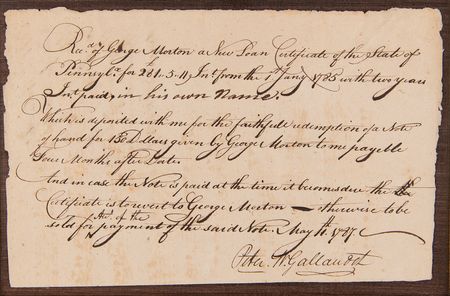 Rec.d of George Morton a New Loan Certificate of the State of
Pennsyl.a for 281.3.11, Int from the 1st Jany 1785 with two years
Int paid, in his own Name.
Which is deposited with me for the faithful redemption of a Note
of hand for 150 Dollars given by George Morton to me payable
Four Months after Date.
And in case the Note is paid at the time it becomes due the
Certificate is to revert to George Morton — otherwise to be
sold for payment of the said Note. May 1787
Peter W. Gallaudet